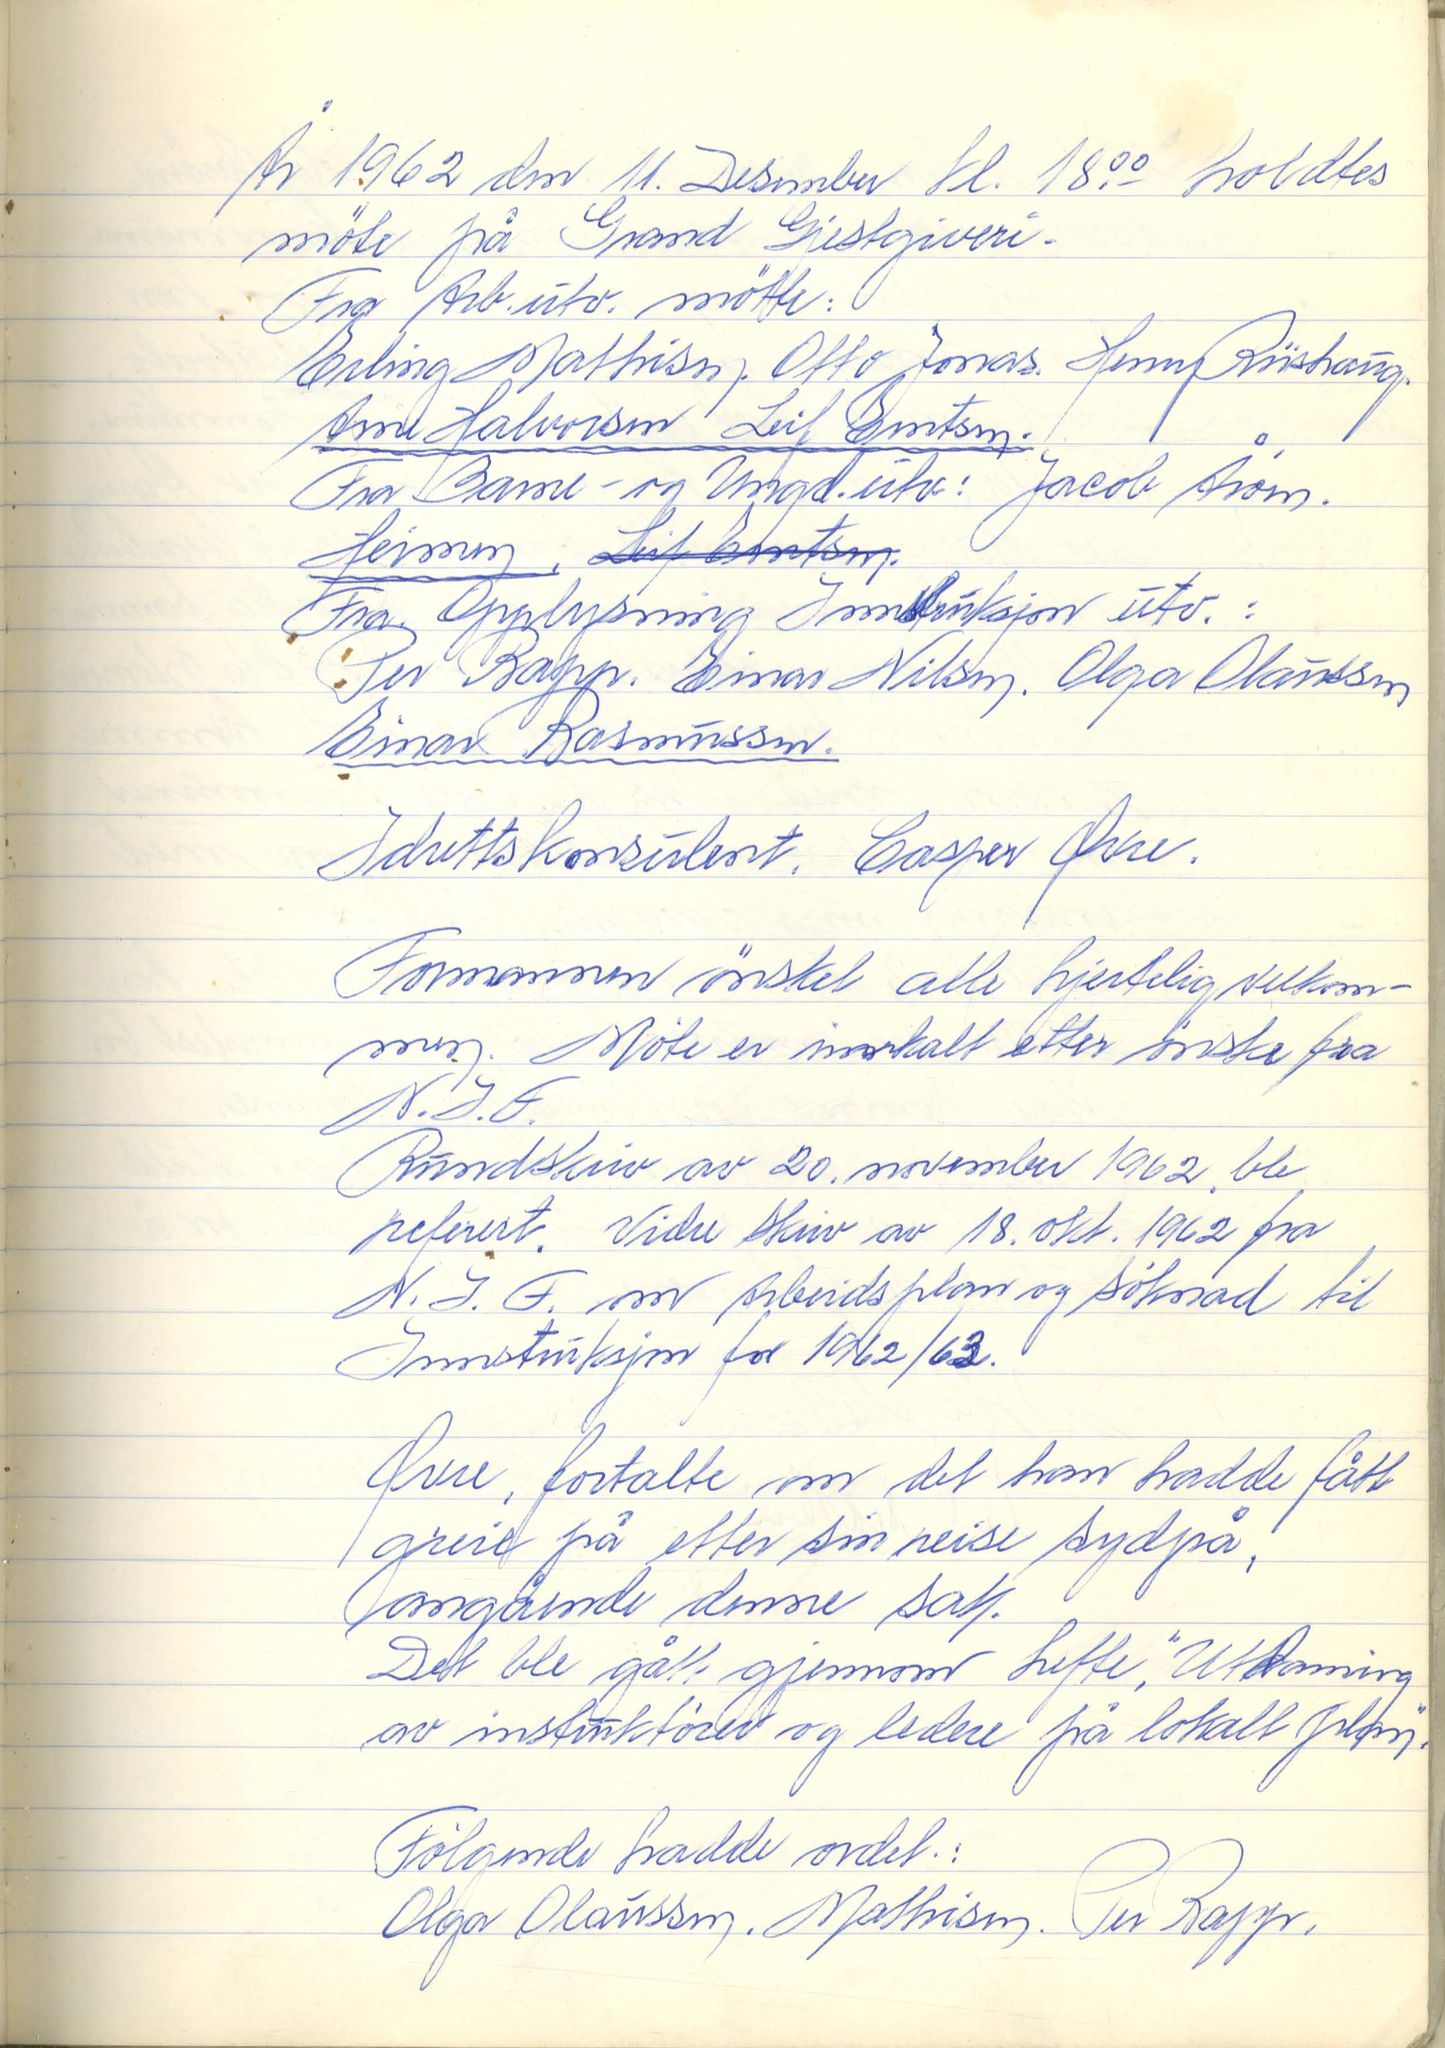 År 1962 den 11. Desember kl. 18.00 holdtes
möte på Grand Gjestgiveri.
Fra Arb.utv. mötte:
Erling Mathisen. Otto Jonas. Henny Riishaug.
Arne Halvorsen Leif Berntsen.
Fra Barne- og Ungd.utv.: Jacob Åsöm.
Heimen, Leif Berntsen.
Fra Opplysning Innstruksjon utv.:
Per Rapp. Einar Nilsen. Olga Olaussen
Einar Rasmussen.
Idrettskonsulent. Casper Øvre.
Formannen önsket alle hjertelig velkom-
men. Möte er innkalt etter önske fra
N.I.F.
Rundskriv av 20. november 1962. ble
referert. Vidre skriv av 18. okt. 1962 fra
N.I.F. om Arbeidsplan og söknad til
Innstruksjon for 1962/63.
Øvre, fortalte om det han hadde fått
greie på etter sin reise sydpå,
angående denne sak.
Det ble gått gjennom hefte, "Utdanning
av instruktører og ledere på lokalt plan".
Følgende hadde ordet.:
Olga Olaussen. Mathisen. Per Rapp.